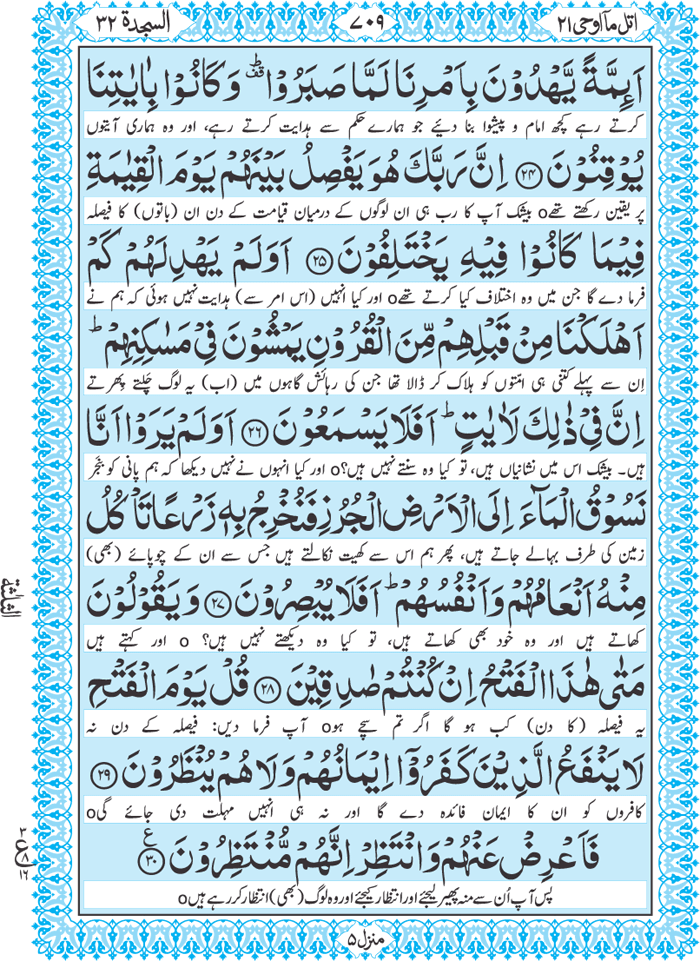 السجدة ٣٢
٧٠٩
اتل ما اوحی ٢١
اَىِٕمَّةً يَّهْدُوْنَ بِاَمْرِنَا لَمَّا صَبَرُوْا ؕ۫ وَكَانُوْا بِاٰيٰتِنَا
کرتے رہے کچھ امام و پیشوا بنا دیئے جو ہمارے حکم سے ہدایت کرتے رہے، اور وہ ہماری آیتوں
يُوْقِنُوْنَ ۝٢٤ اِنَّ رَبَّكَ هُوَ يَفْصِلُ بَيْنَهُمْ يَوْمَ الْقِيٰمَةِ
پر یقین رکھتے تھےo بیشک آپ کا رب ہی ان لوگوں کے درمیان قیامت کے دن ان (باتوں) کا فیصلہ
فِيْمَا كَانُوْا فِيْهِ يَخْتَلِفُوْنَ ۝٢٥ اَوَلَمْ يَهْدِ لَهُمْ كَمْ
فرما دے گا جن میں وہ اختلاف کیا کرتے تھےo اور کیا انہیں (اس امر سے) ہدایت نہیں ہوئی کہ ہم نے
اَهْلَكْنَا مِنْ قَبْلِهِمْ مِّنَ الْقُرُوْنِ يَمْشُوْنَ فِيْ مَسٰكِنِهِمْ ؕ
اِن سے پہلے کتنی ہی امّتوں کو ہلاک کر ڈالا تھا جن کی رہائش گاہوں میں (اب) یہ لوگ چَلتے پِھرتے
اِنَّ فِيْ ذٰلِكَ لَاٰيٰتٍ ؕ اَفَلَا يَسْمَعُوْنَ ۝٢٦ اَوَلَمْ يَرَوْا اَنَّا
ہیں۔ بیشک اس میں نشانیاں ہیں، تو کیا وہ سنتے نہیں ہیں؟o اور کیا انہوں نے نہیں دیکھا کہ ہم پانی کو بنجر
نَسُوْقُ الْمَآءَ اِلَى الْاَرْضِ الْجُرُزِ فَنُخْرِجُ بِهٖ زَرْعًا تَاْكُلُ
زمین کی طرف بہا لے جاتے ہیں، پھر ہم اس سے کھیت نکالتے ہیں جس سے ان کے چوپائے (بھی)
مِنْهُ اَنْعَامُهُمْ وَاَنْفُسُهُمْ ؕ اَفَلَا يُبْصِرُوْنَ ۝٢٧ وَيَقُوْلُوْنَ
کھاتے ہیں اور وہ خود بھی کھاتے ہیں، تو کیا وہ دیکھتے نہیں ہیں؟ o اور کہتے ہیں
مَتٰى هٰذَا الْفَتْحُ اِنْ كُنْتُمْ صٰدِقِيْنَ ۝٢٨ قُلْ يَوْمَ الْفَتْحِ
یہ فیصلہ (کا دن) کب ہو گا اگر تم سچے ہوo آپ فرما دیں: فیصلہ کے دن نہ
لَا يَنْفَعُ الَّذِيْنَ كَفَرُوْۤا اِيْمَانُهُمْ وَلَا هُمْ يُنْظَرُوْنَ ۝٢٩
کافروں کو ان کا ایمان فائدہ دے گا اور نہ ہی انہیں مہلت دی جائے گیo
فَاَعْرِضْ عَنْهُمْ وَانْتَظِرْ اِنَّهُمْ مُّنْتَظِرُوْنَ ۝٣٠ ع
پس آپ اُن سے منہ پھیر لیجئے اور انتظار کیجئے اور وہ لوگ (بھی) انتظار کر رہے ہیںo
الثلٰثة
٣
ع ٨
١٦
منزل ٥